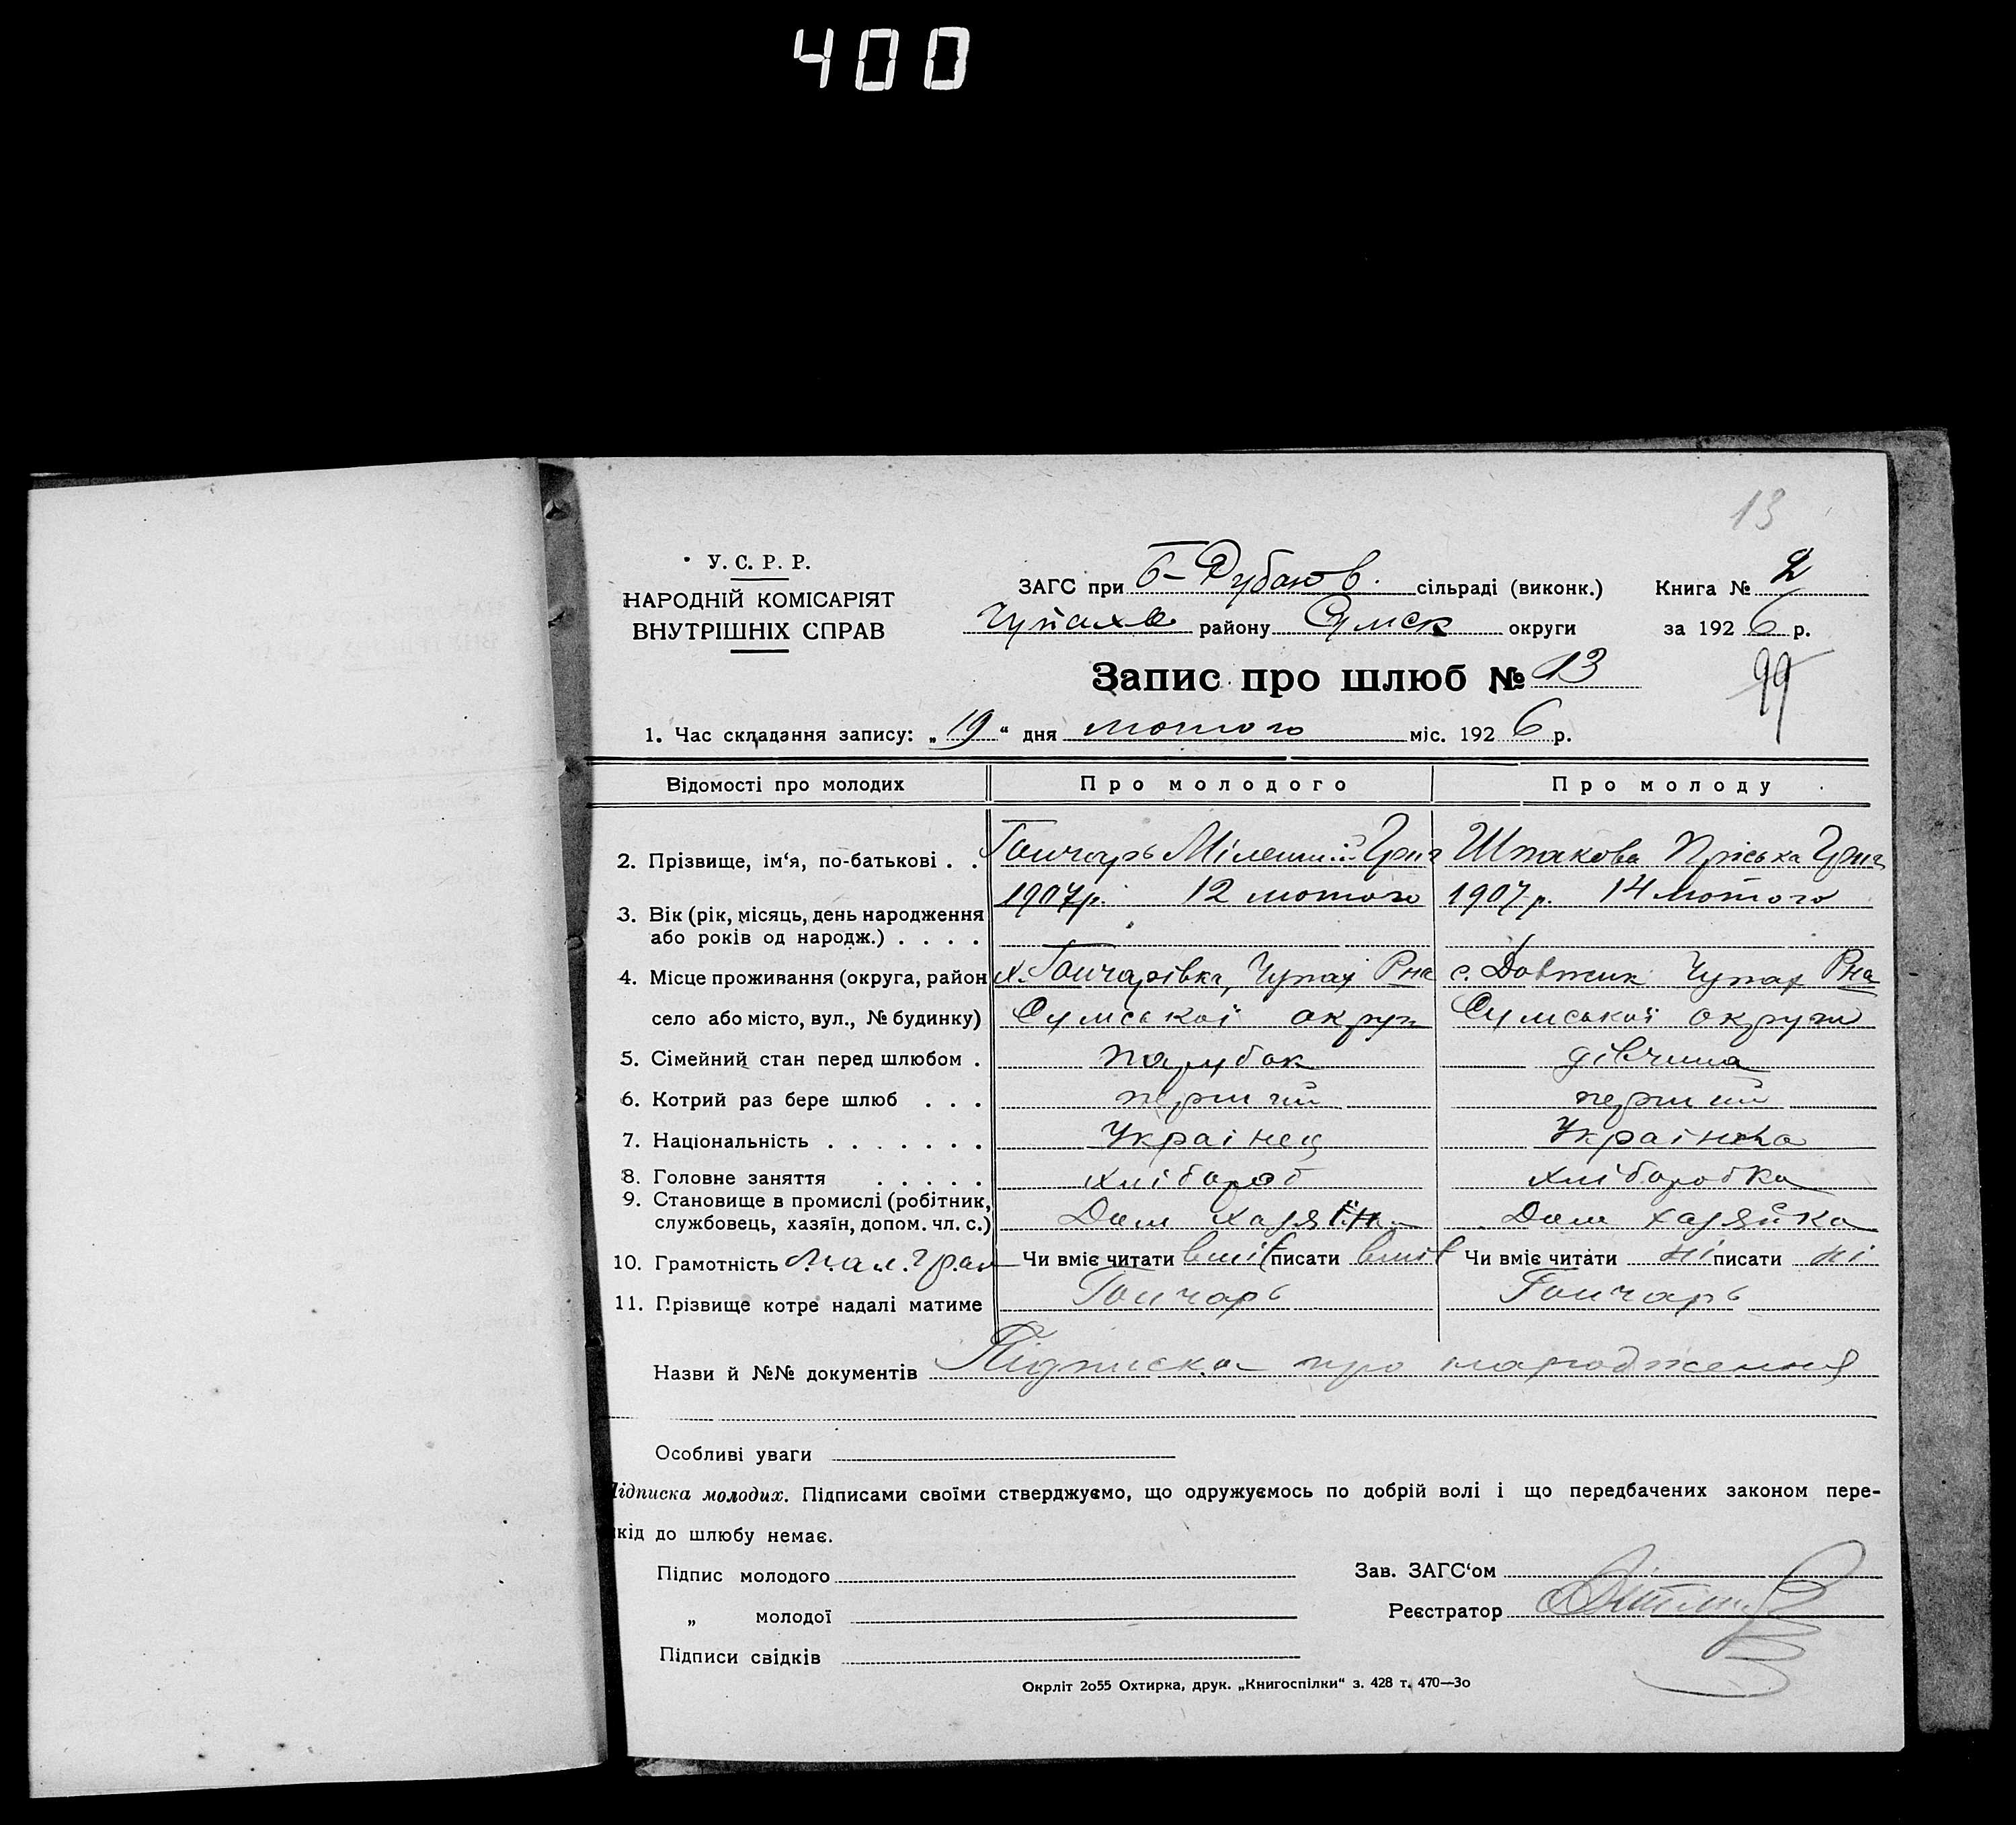 400
13
У. С. Р. Р.
НАРОДНІЙ КОМІСАРІЯТ
ВНУТРІШНІХ СПРАВ
ЗАГС при Б-Дубаюв. сільраді (виконк.) Книга № 2
Чупахв району Сумск округи за 1926 р.
Запис про шлюб № 13
99
1. Час складання запису: „19“ дня лютого міс. 1926 р.
Відомості про молодих Про молодого Про молоду
2. Прізвище, ім‘я, по-батькові . . Гончарь Григ Шпакова Пріська Григ
3. Вік (рік, місяць, день народження 1907 р. 12 лютого 1907 р. 14 лютого
або років од народж.) . . . .
4. Місце проживання (округа, район х. Гончарівка, Чупах Рна с. Довжик Чупах Рна
село або місто, вул., № будинку) Сумської округи Сумської округи
5. Сімейний стан перед шлюбом . парубок дівчина
6. Котрий раз бере шлюб . . . перший перший
7. Національність . . . . . . . Украінец Украінка
8. Головне заняття . . . . . хлібороб хліборобка
9. Становище в промислі (робітник,
службовець, хазяїн, допом. чл. с.) Дом хазяїн Дом хазяйка
10. Грамотність Мал. грам Чи вміє читати вміє писати вміє Чи вміє читати ні писати ні
11. Прізвище котре надалі матиме Гончарь Гончарь
Назви й №№ документів Підписка про народження
Особливі уваги
Підписка молодих. Підписами своїми стверджуємо, що одружуємось по добрій волі і що передбачених законом пере-
кід до шлюбу немає.
Підпис молодого Зав. ЗАГС‘ом
„ молодої Реєстратор
Підписи свідків
Окрліт 2о55 Охтирка, друк. „Книгоспілки“ з. 428 т. 470—3о